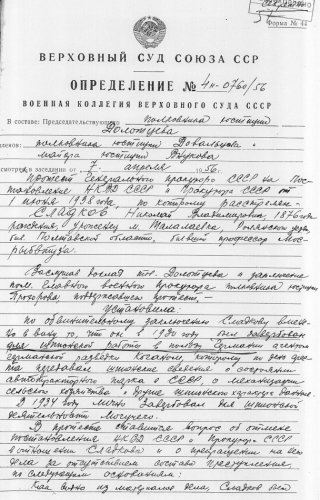 СЕКРЕТНО
Форма № 44
ВЕРХОВНЫЙ СУД СОЮЗА ССР
ОПРЕДЕЛЕНИЕ № 4н-0760/56
ВОЕННАЯ КОЛЛЕГИЯ ВЕРХОВНОГО СУДА СССР
В составе: Председательствующего полковника юстиции
Долотцева
полковника юстиции
майора юстиции
в заседании от 7 апреля 56.
протест Генерального прокурора СССР на пос-
тановление НКВД СССР и Прокурора СССР от
1 июня 1938 года, по которому расстрелян-
СЛАДКОВ Николай Владимирович 1876 года
рождения, уроженец м. Талалаевка, Роменского
Полтавской области, бывший профессор Мос-
рыбвтуза.
Заслушав доклад тов. Долотцева и заключение
пом. Главного военного прокурора полковника юстиции
Прохорова, поддержавшего протест, -
Установила
по обвинительному заключению Сладкову вмене-
но в вину то, что он в 1930 году был завербован
для шпионской работы в пользу Германии агентом
германской разведки Коганом, которому по день ареста
передавал шпионские сведения о состоянии
автотракторного парка в СССР, о механизации
сельского хозяйства и другие шпионского характера данные.
В 1934 году лично завербовал для шпионской
деятельности
В протесте ставится вопрос об отмене
постановления НКВД СССР и Прокурора СССР
в отношении Сладкова и о прекращении на него
дела за отсутствием состава преступления,
по следующим основаниям:
Как видно из материалов дела, Сладков был